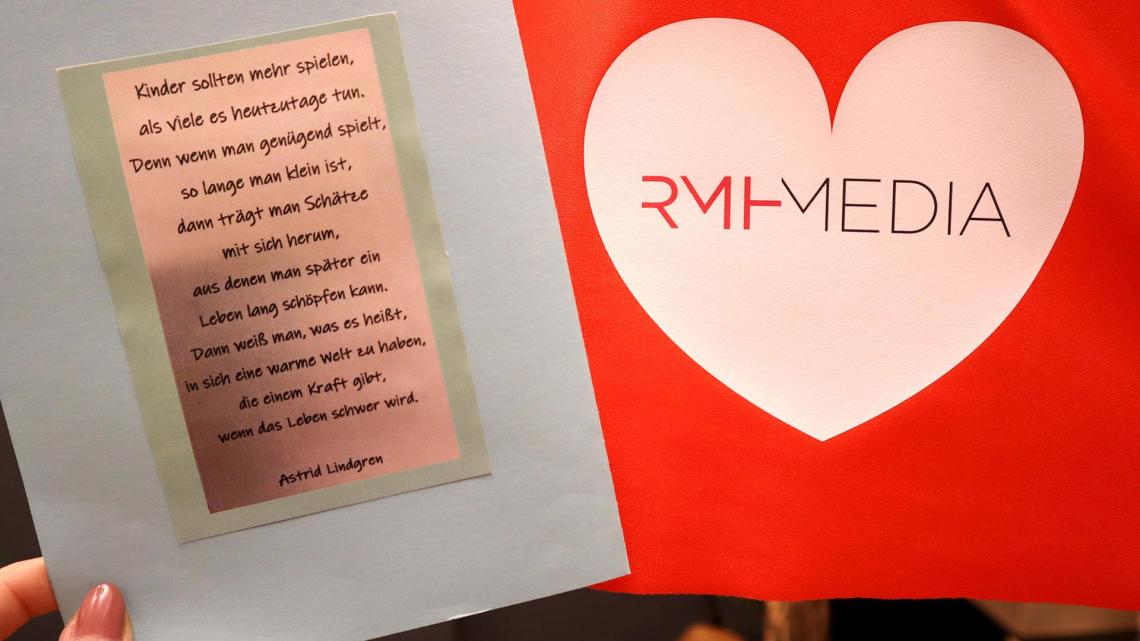 Kinder sollten mehr spielen,
als viele es heutzutage tun.
Denn wenn man genügend spielt,
so lange man klein ist,
dann trägt man Schätze
mit sich herum,
aus denen man später ein
Leben lang schöpfen kann.
Dann weiß man, was es heißt,
in sich eine warme Welt zu haben,
die einem Kraft gibt,
wenn das Leben schwer wird.
Astrid Lindgren
RMH MEDIA